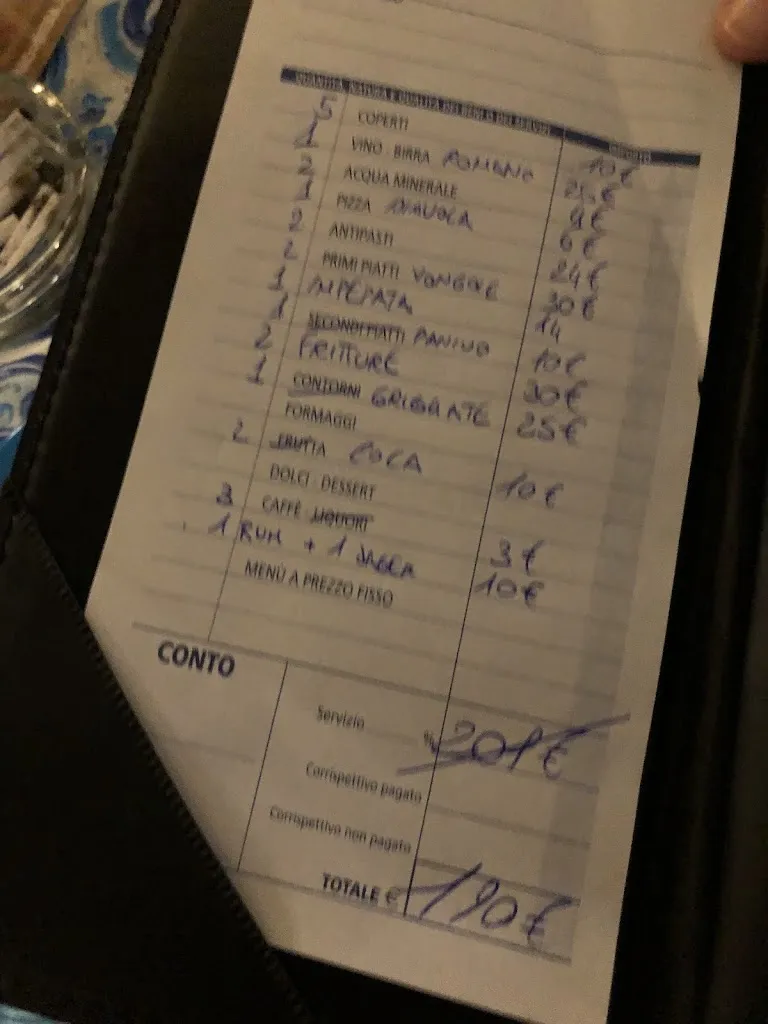 QUANTITÀ, NATURA E QUALITÀ DEI BENI E DEI SERVIZI IMPORTO
5 COPERTI 10€
1 VINO - BIRRA 25€
2 ACQUA MINERALE 4€
1 PIZZA DIAVOLA 6€
2 ANTIPASTI 24€
2 PRIMI PIATTI VONGOLE 30€
1 IMPEPATA 14
1 SECONDI PIATTI PANINO 10€
2 FRITTURE 30€
1 CONTORNI GRIGLIATE 25€
FORMAGGI
2 FRUTTA COCA 10€
DOLCI - DESSERT
3 CAFFÈ LIQUORI 3€
1 RUM + 1 JAGER 10€
MENÙ A PREZZO FISSO
CONTO
Servizio % 201€
Corrispettivo pagato
Corrispettivo non pagato
TOTALE € 190€